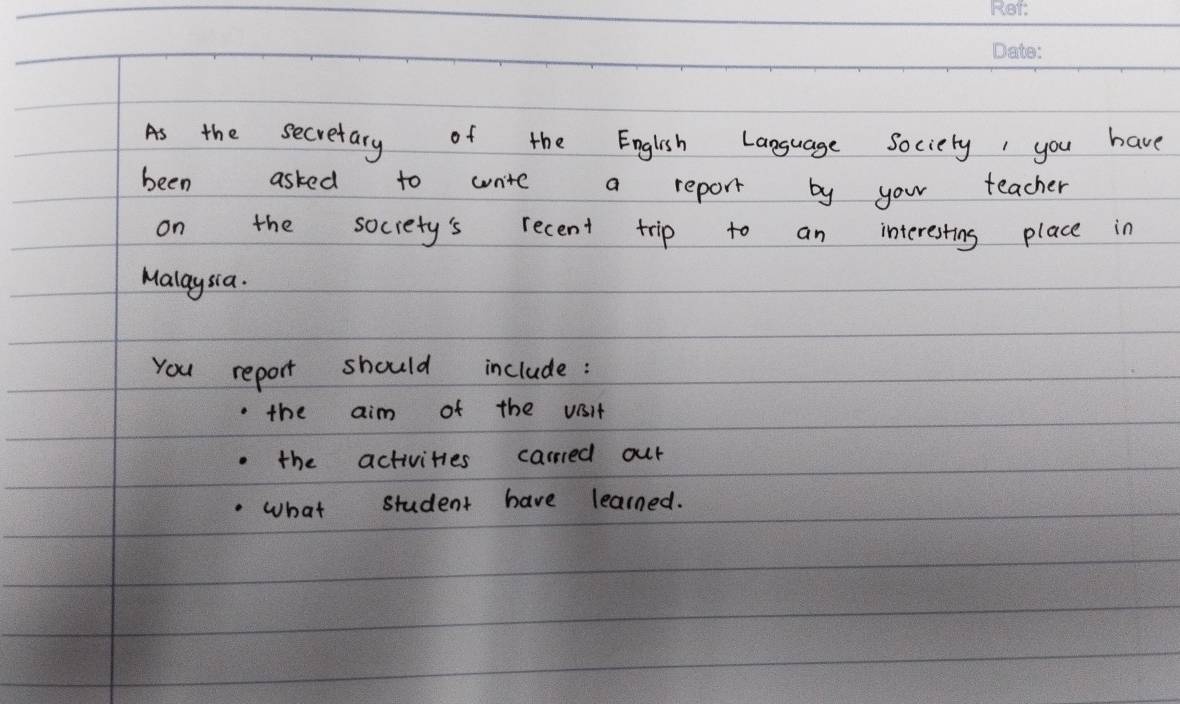 Ref:
Date:
As the secretary of the English Language Society, you have
been asked to write a report by your teacher
on the society's recent trip to an interesting place in
Malaysia.
You report should include:
• the aim of the visit
• the activities carried out
• what student have learned.